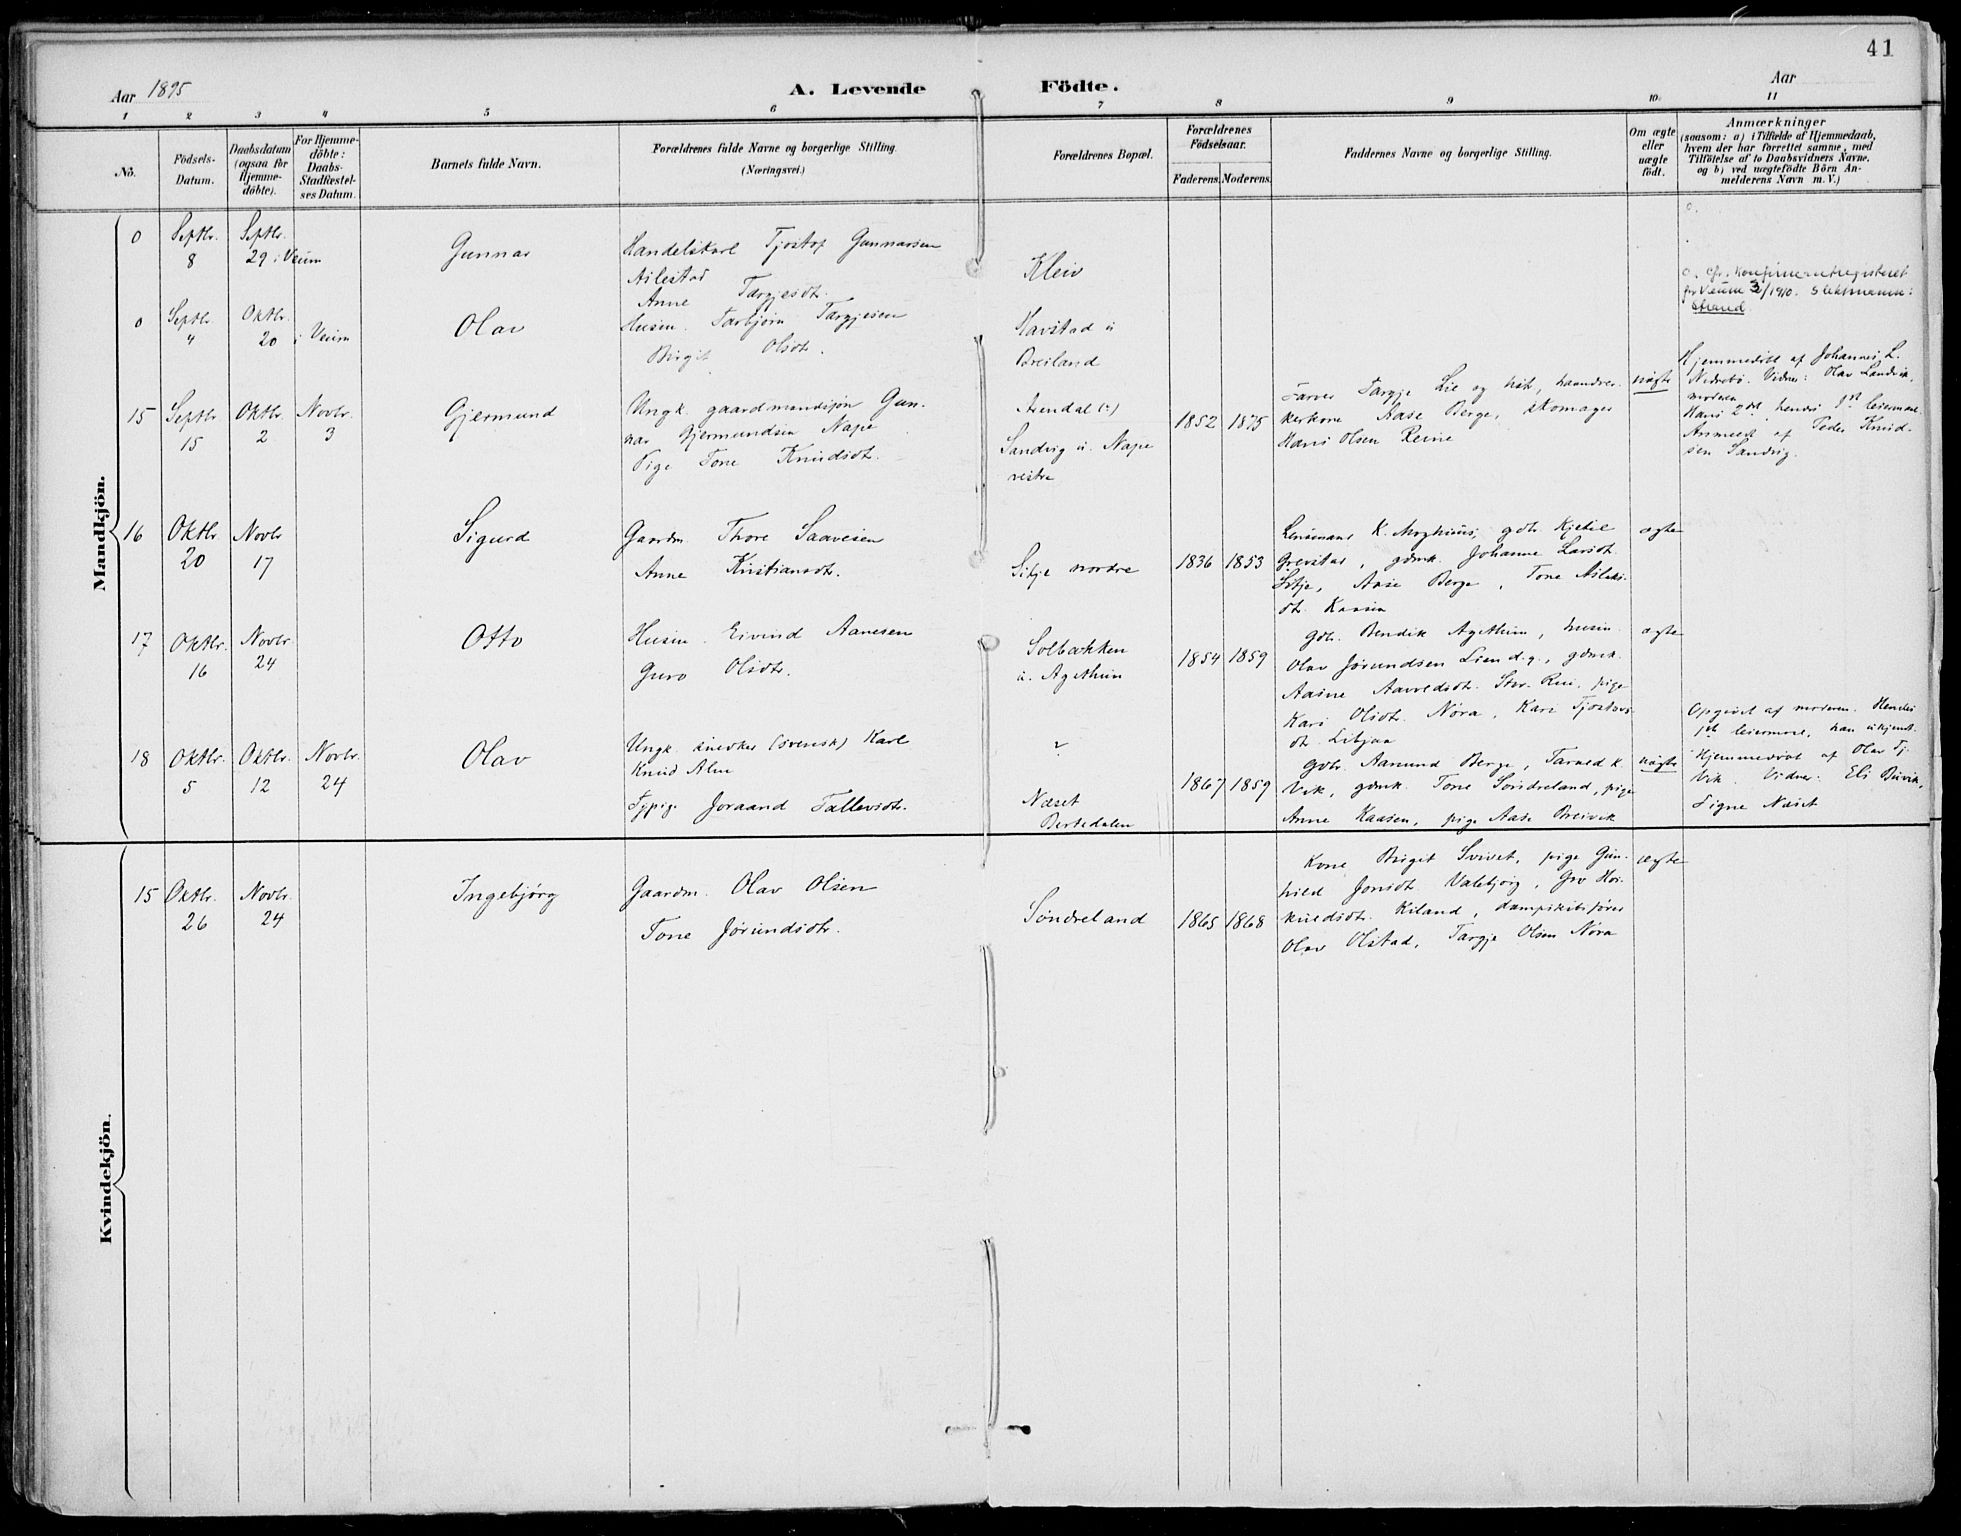 41
Aar 1895
A. Levende Födte.
Aar
1 2 3 4 5 6 7 8 9 10 11
No.
Födsels-
Datum.
Daabsdatum
(ogsaa for
Hjemme-
döbte).
For Hjemme-
döbte:
Daabs-
Stadfæstel-
ses Datum.
Barnets fulde Navn.
Forældrenes fulde Navne og borgerlige Stilling
(Næringsvei.)
Forældrenes Bopæl.
Forældrenes
Födselsaar.
Faderens. Moderens.
Faddernes Navne og borgerlige Stilling.
Om ægte
eller
uægte
födt.
Anmærkninger
(saasom: a) i Tilfælde af Hjemmedaab,
hvem der har forrettet samme, med
Tilföielse af to Daabsvidners Navne.
og b) ved uægtefödte Börn An-
melderens Navn m. V.)
Mandkjön.
0 Septbr. 8
Septbr. 29 i Veum
Gunnar
Handelskarl Tjostof Gunnarsen
Ailestad
Anne Targjesdt.
Kleiv
o. cfr. Konfirmantregisteret
for Veum 3/1910. Slektsnavn:
Strand
0 Septbr. 4
Oktbr. 20 i Veum
Olav
Husm. Tarbjörn Targjesen
Birgit Olsdt.
Havstad u
Breiland
15 Septbr 15
Oktbr. 2
Novbr. 3
Gjermund
Ungk. gaardmandssön Gun-
nar Gjermundsen Nape
Pige Tone Knudsdt.
Arendal (?)
Sandvig u. Nape
vestre
1852 1875
Farver Targje Lie og hst, haandver-
kerkone Aase Berge, skomager
Hans Olsen Reine
uägte
Hjemmedöbt af Johannes L.
Nedrebö. Vidner: Olav Landvik,
moderen
Hans 2det, hendes 1ste leiermaal.
Anmeldt af Peder Knud-
sen Sandvig.
16 Oktbr. 20
Novbr 17
Sigurd
Gaardm. Thore Saavesen
Anne Kristiansdt.
Sitje nordre
1836 1853
Lensmand K. Moghuus, gdbr. Kjetil
Grevstad, gdmk. Johanne Larsdt.
Sitje, Aase Berge, Tone Aslaks-
dt. Kaasen
ægte
17 Oktbr. 16
Novbr. 24
Otto
Husm. Eivind Aanesen
Guro Olsdt.
Solbækken
u. Agethun
1854 1859
Gdbr. Bendik Agethun, husm.
Olav Jörundsen Lien d.y., gdmk.
Aasne Aavoldsdt. Stv. Rui, pige
Kari Olsdt. Nöra, Kari Tjostovs-
dt. Libjaa
ægte
18 Oktbr. 5
Oktbr. 12
Novbr. 24
Olav
Ungk. snedker (svensk) Karl
Knud Alm
Typige Joraand Tallevsdt.
?
Næset
Bertedalen
1867 1859
Gdbr. Aanund Berge, Tarald K.
Vik, gdmk. Tone Söndreland, pige
Anne Kaasen, pige Aase Breivik
uägte
Opgivet af moderen. Hendes
1ste leiermaal, han ukjendt.
Hjemmedöbt af Olav Tj.
Vik. Vidner: Eli Buvik,
Signe Næset
Kvindekjön.
15 Oktbr. 26
Novbr. 24
Ingebjörg
Gaardm. Olav Olsen
Tone Jörundsdtr.
Söndreland
1865 1868
Kone Birgit Svivet, pige Gun-
hild Jonsdt. Valebjörg, Gro Hös-
kuldsdt. Kiland, dampskibsförer
Olav Olstad, Targje Olsen Nöra
ægte